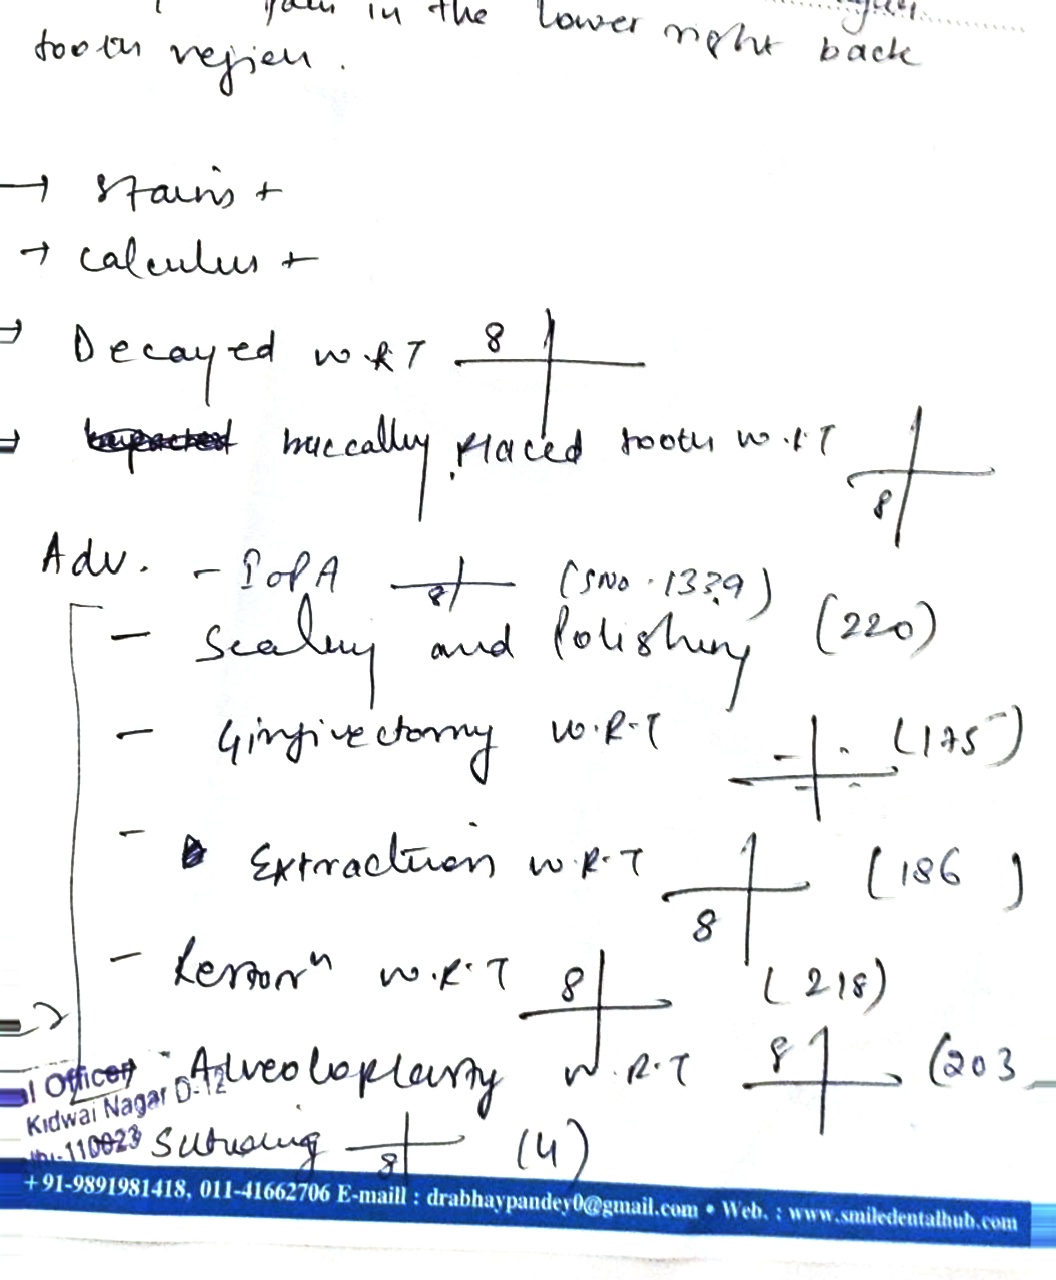 pain in the lower right back
tooth region.
→ Stains +
→ Calculus +
→ Decayed W.R.T 8
→ buccally placed tooth W.R.T 8
Adv. - IOPA 8 (SNO. 1339)
- Scaling and Polishing (220)
- Gingivectomy W.R.T (175)
- Extraction W.R.T 8 (186)
- Restorⁿ W.R.T 8 (218)
- Alveoloplasty W.R.T 8 (203
Suturing 8 (4)
l Officer
Kidwai Nagar D-12
-110023
+91-9891981418, 011-41662706 E-maill : drabhaypandey0@gmail.com • Web. : www.smiledentalhub.com